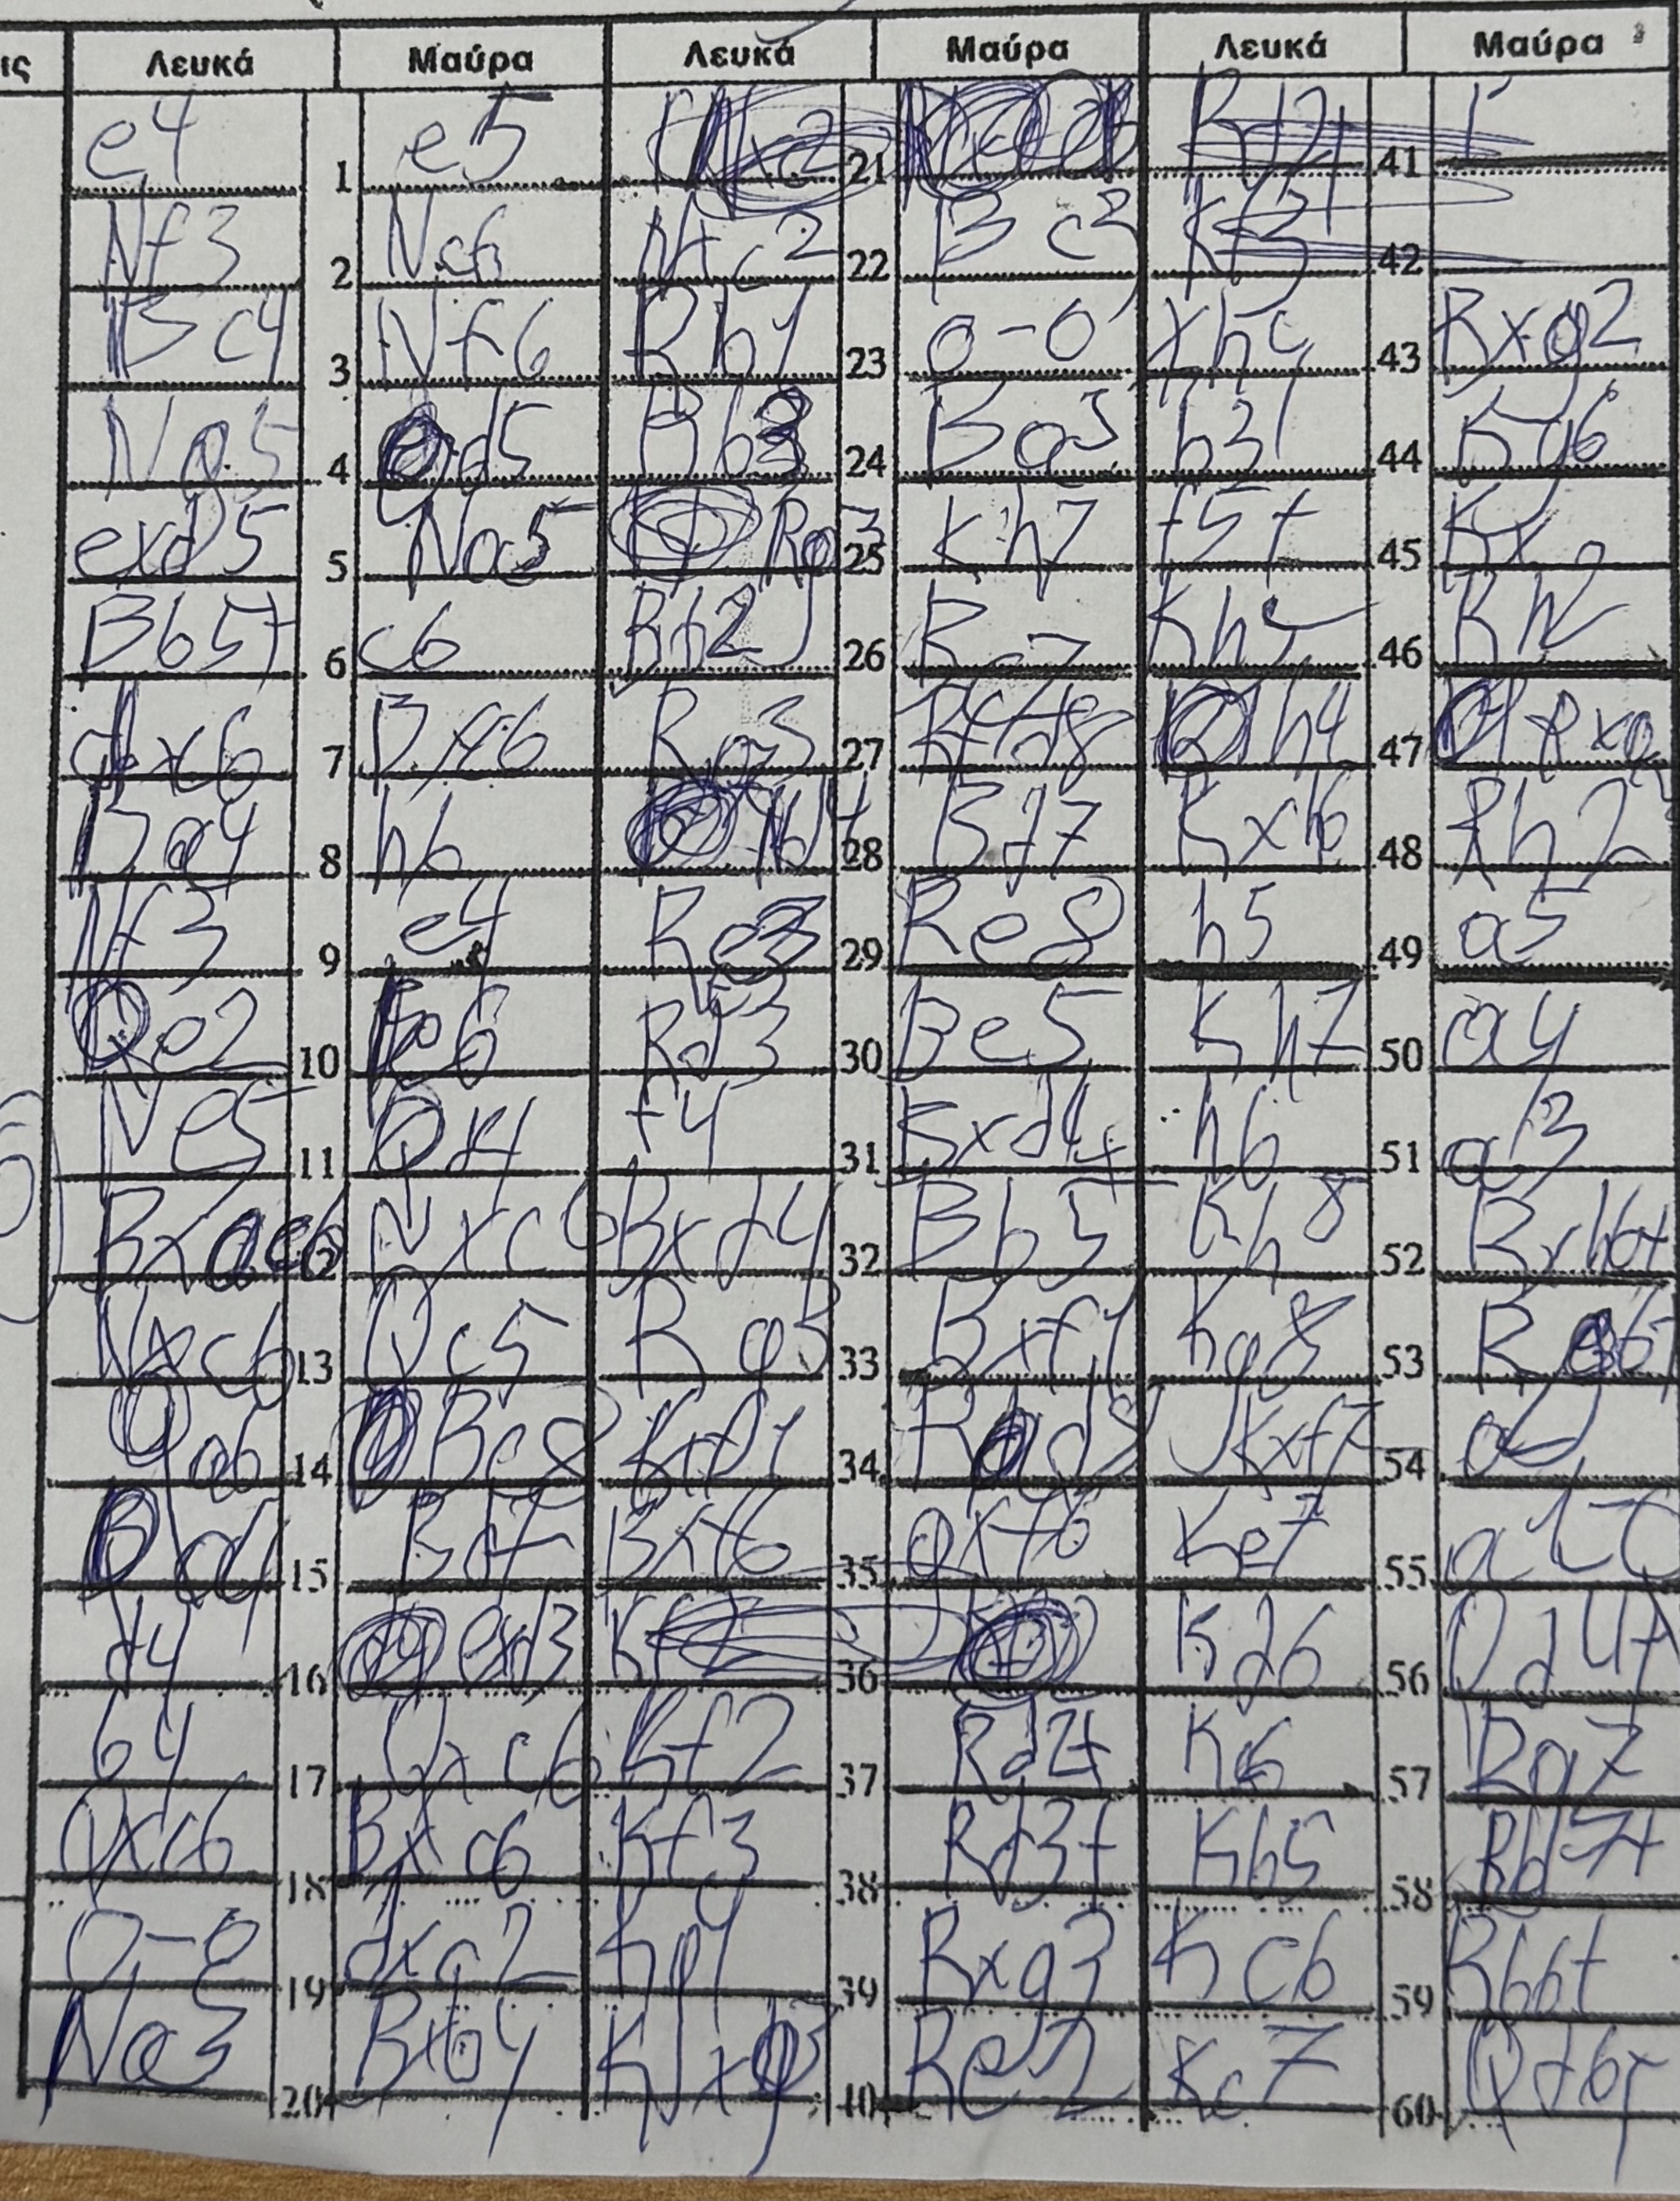 Λευκά Μαύρα Λευκά Μαύρα Λευκά Μαύρα
e4 1 e5 21 41
Nf3 2 Nc6 Nxc2 22 Bc3 Kf3 42
Bc4 3 Nf6 Rb1 23 0-0 43 Rxg2
Ng5 4 d5 Rb3 24 Ba5 h3 44 Kg6
exd5 5 Na5 Rg3 25 Kh7 f5+ 45
Bb5+ 6 c6 Rh2 26 46
dxc6 7 Rg3 27 Rfd8 h4 47 Rxg
Ba4 8 h6 Nd4 28 Bd7 Kxh6 48 Rh2
Nf3 9 e4 Re3 29 Re8 h5 49 a5
Qe2 10 Rd3 30 Be5 Kh7 50 a4
Ne5 11 Qd4 f4 31 Bxd4+ h6 51 a3
12 Nxc6 Bxd4 32 Bb5 Kh8 52 Rxh6+
Nxc6 13 Qc5 Rg3 33 Bxf1 Kg8 53
14 Bc8 Kxf1 34 Kxf7 54
15 Bd7 Bxf6 35 gxf6 Ke7 55
d4 16 exd3 Kf2 36 Kd6 56 Qd4+
b4 17 Qxc6 Kf2 37 Rd2+ 57 Ra7
Qxc6 18 Bxc6 Kf3 38 Rd3+ Kb5 58 Rb7+
0-0 19 dxc2 Kg4 39 Rxg3 Kc6 59 Rb6+
Na3 20 Bxb4 40 Re2 Kc7 60 Qd6+